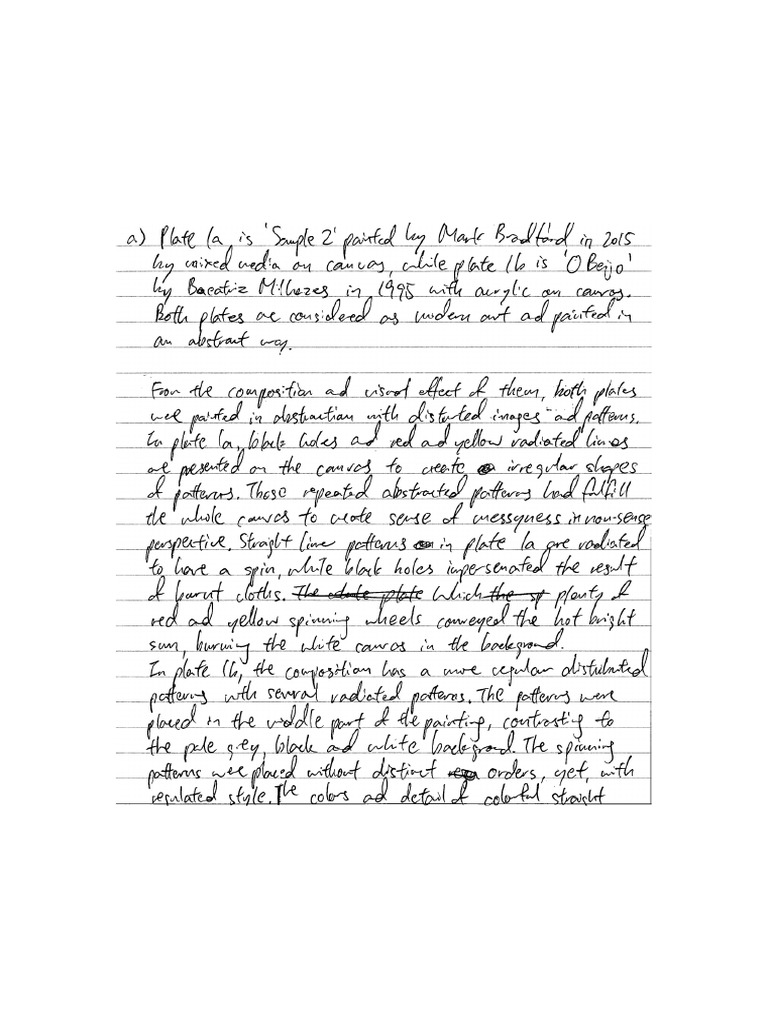 a) Plate 1a, is 'Sample 2' painted by Mark Bradford in 2015
by mixed media on canvas, while plate 1b is 'O Beijo'
by Beatriz Milhazes in 1995 with acrylic on canvas.
Both plates are considered as modern art ad painted in
an abstract way.
From the composition and visual effect of them, both plates
were painted in abstraction with distorted images ad patterns.
In plate 1a, black holes and red ad yellow radiated lines
are presented on the canvas to create irregular shapes
of patterns. Those repeated abstracted patterns had fulfill
the whole canvas to create sense of messyness in non-sense
perspective. Straight line patterns in plate 1a are radiated
to have a spin, while black holes impersenated the result
of burnt cloths. Which plenty of
red ad yellow spinning wheels conveyed the hot bright
sun, burning the white canvas in the background.
In plate 1b, the composition has a more regular distributed
patterns with several radiated patterns. The patterns were
placed in the middle part of the painting, contrasting to
the pale grey, black and white background. The spinning
patterns were placed without distinct orders, yet, with
regulated style. The colors and detail of colorful straight